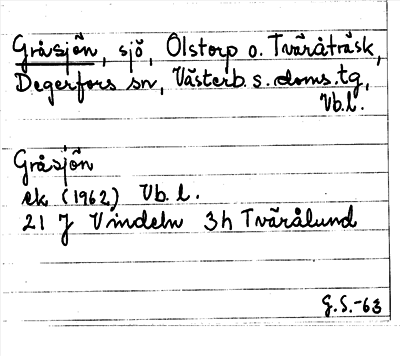 Gråsjön, sjö, Olstorp o. Tväråträsk,
Degerfors sn, Västerb. s. doms. tg,
Vb. l.
Gråsjön
ek (1962) Vb. l.
21 J Vindeln 3h Tvärålund
G.S.-63